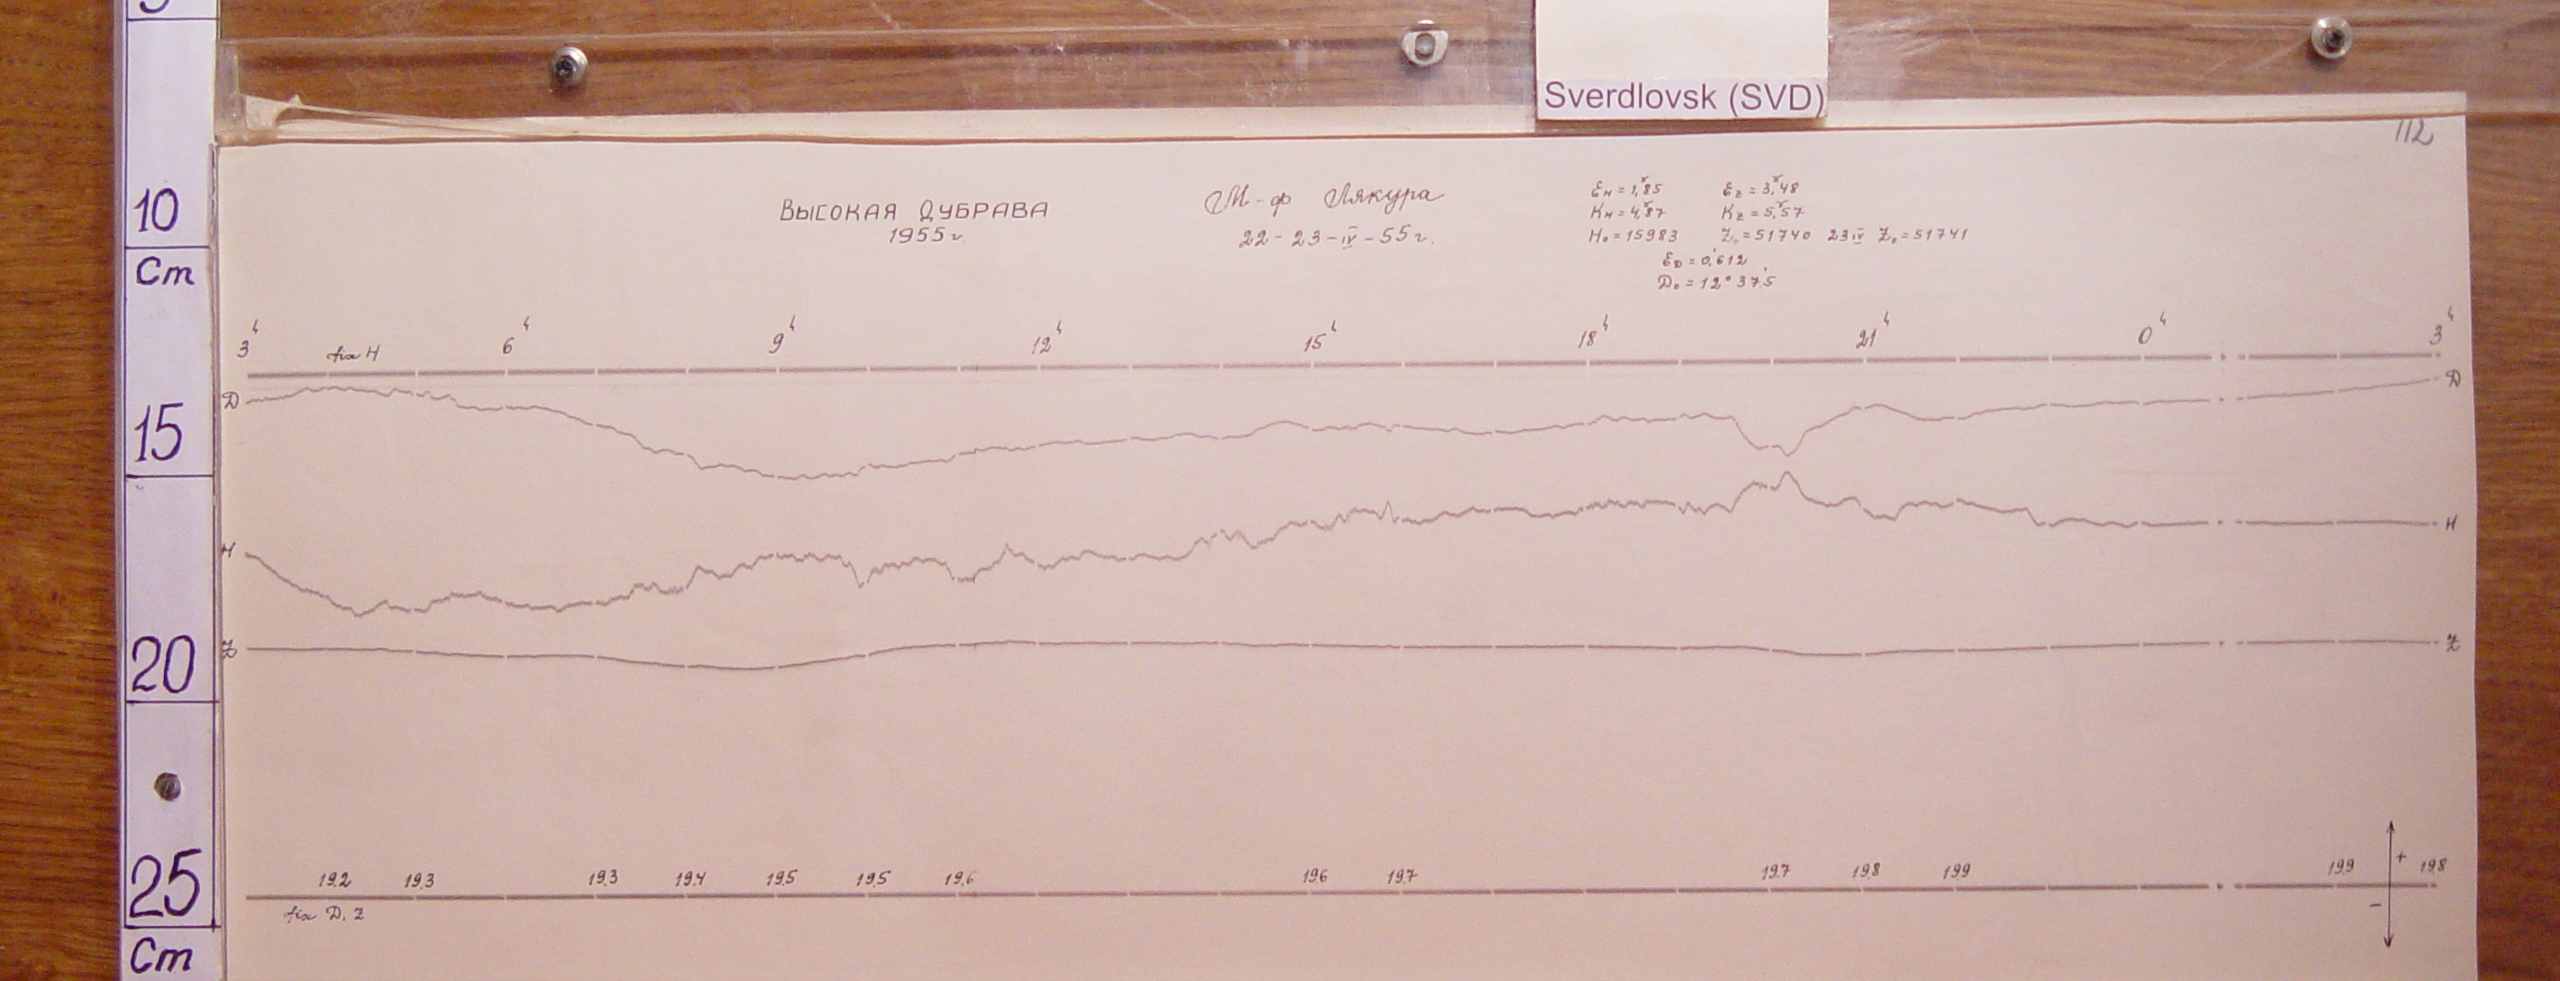 5
Sverdlovsk (SVD)
112
10
Cm
15
20
25
Cm
ВЫСОКАЯ ДУБРАВА
1955 г.
М-ф Лякура
22-23-IV-55 г.
εн = 1,ᵞ85 εz = 3,ᵞ48
Kн = 4,ᵞ87 Kz = 5,ᵞ57
H₀ = 15983 Z₀ = 51740 23 IV Z₀ = 51741
εD = 0,'612
D₀ = 12° 37,'5
3ч 6ч 9ч 12ч 15ч 18ч 21ч 0ч 3ч
fix H
D D
H H
Z Z
19.2 19.3 19.3 19.4 19.5 19.5 19.6 19.6 19.7 19.7 19.8 19.9 19.9 19.8
fix D, Z
+
−